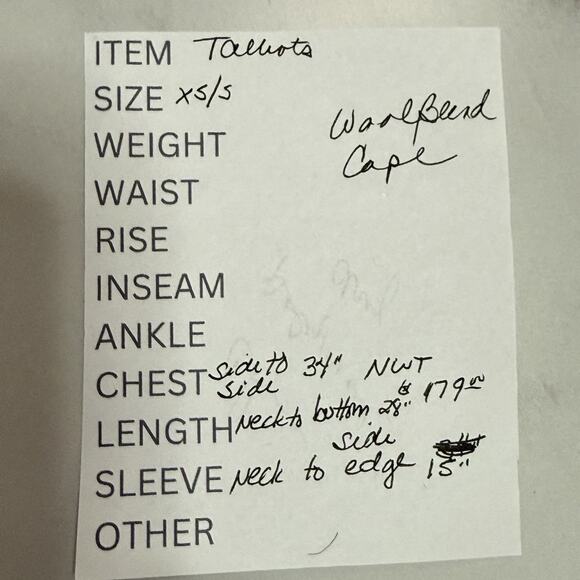 ITEM Talbots
SIZE XS/S
Wool Blend
WEIGHT
Cape
WAIST
RISE
INSEAM
ANKLE
CHEST side to side 34" NWT
179.00
LENGTH Neck to bottom 28"
SLEEVE Neck to side edge 15"
OTHER